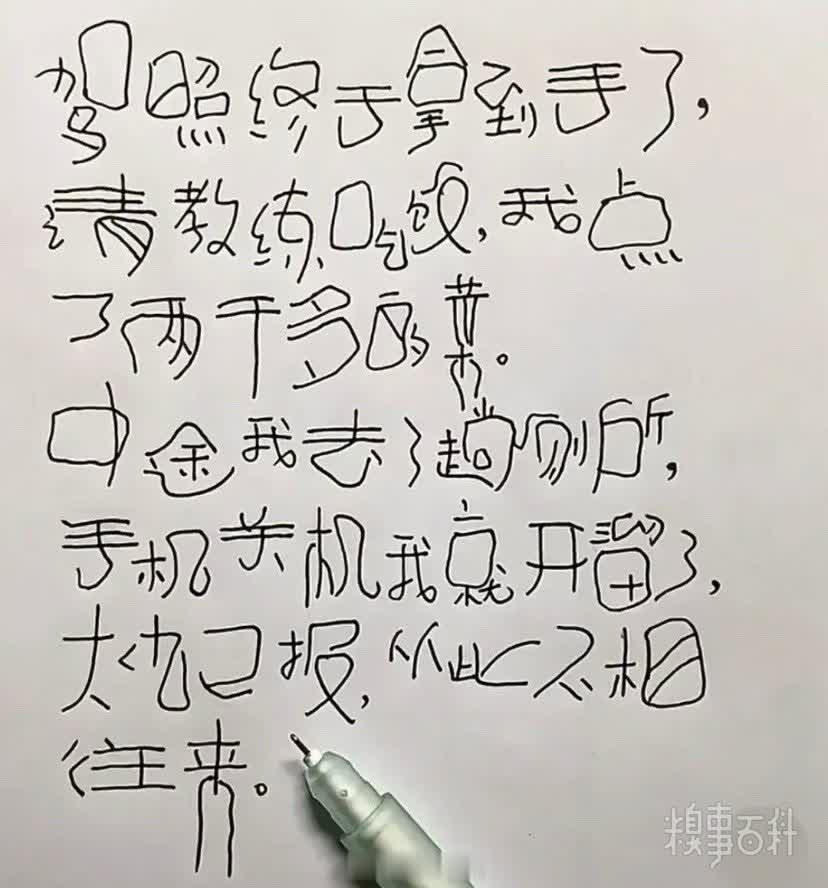 驾照终于拿到手了，
请教练吃饭，我点
了两千多的菜。
中途我去了趟厕所，
手机关机我就开留了，
大仇已报，从此不相
往来。
糗事百科